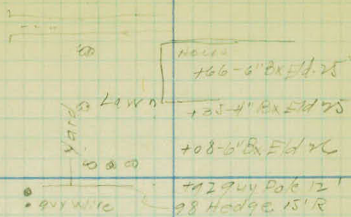 House
+66-6" Bx Eld-25'
Lawn
+35-4" Bx Eld 25
Yard
+08-6" Bx Eld 26
+92 guy Pole 12'
guy wire
98 Hedge 15' R